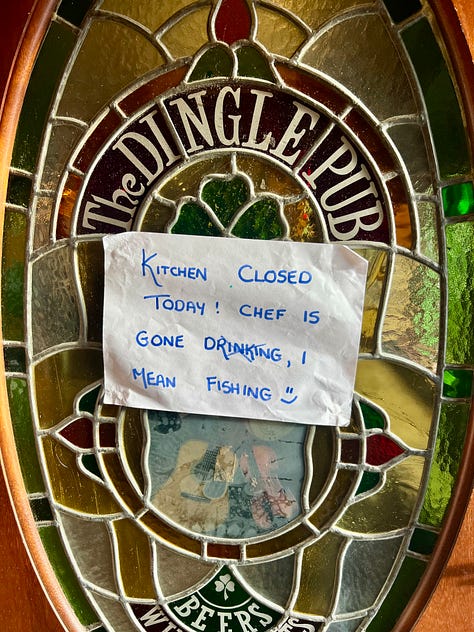 The DINGLE PUB
KITCHEN CLOSED
TODAY! CHEF IS
GONE DRINKING, I
MEAN FISHING
BEERS